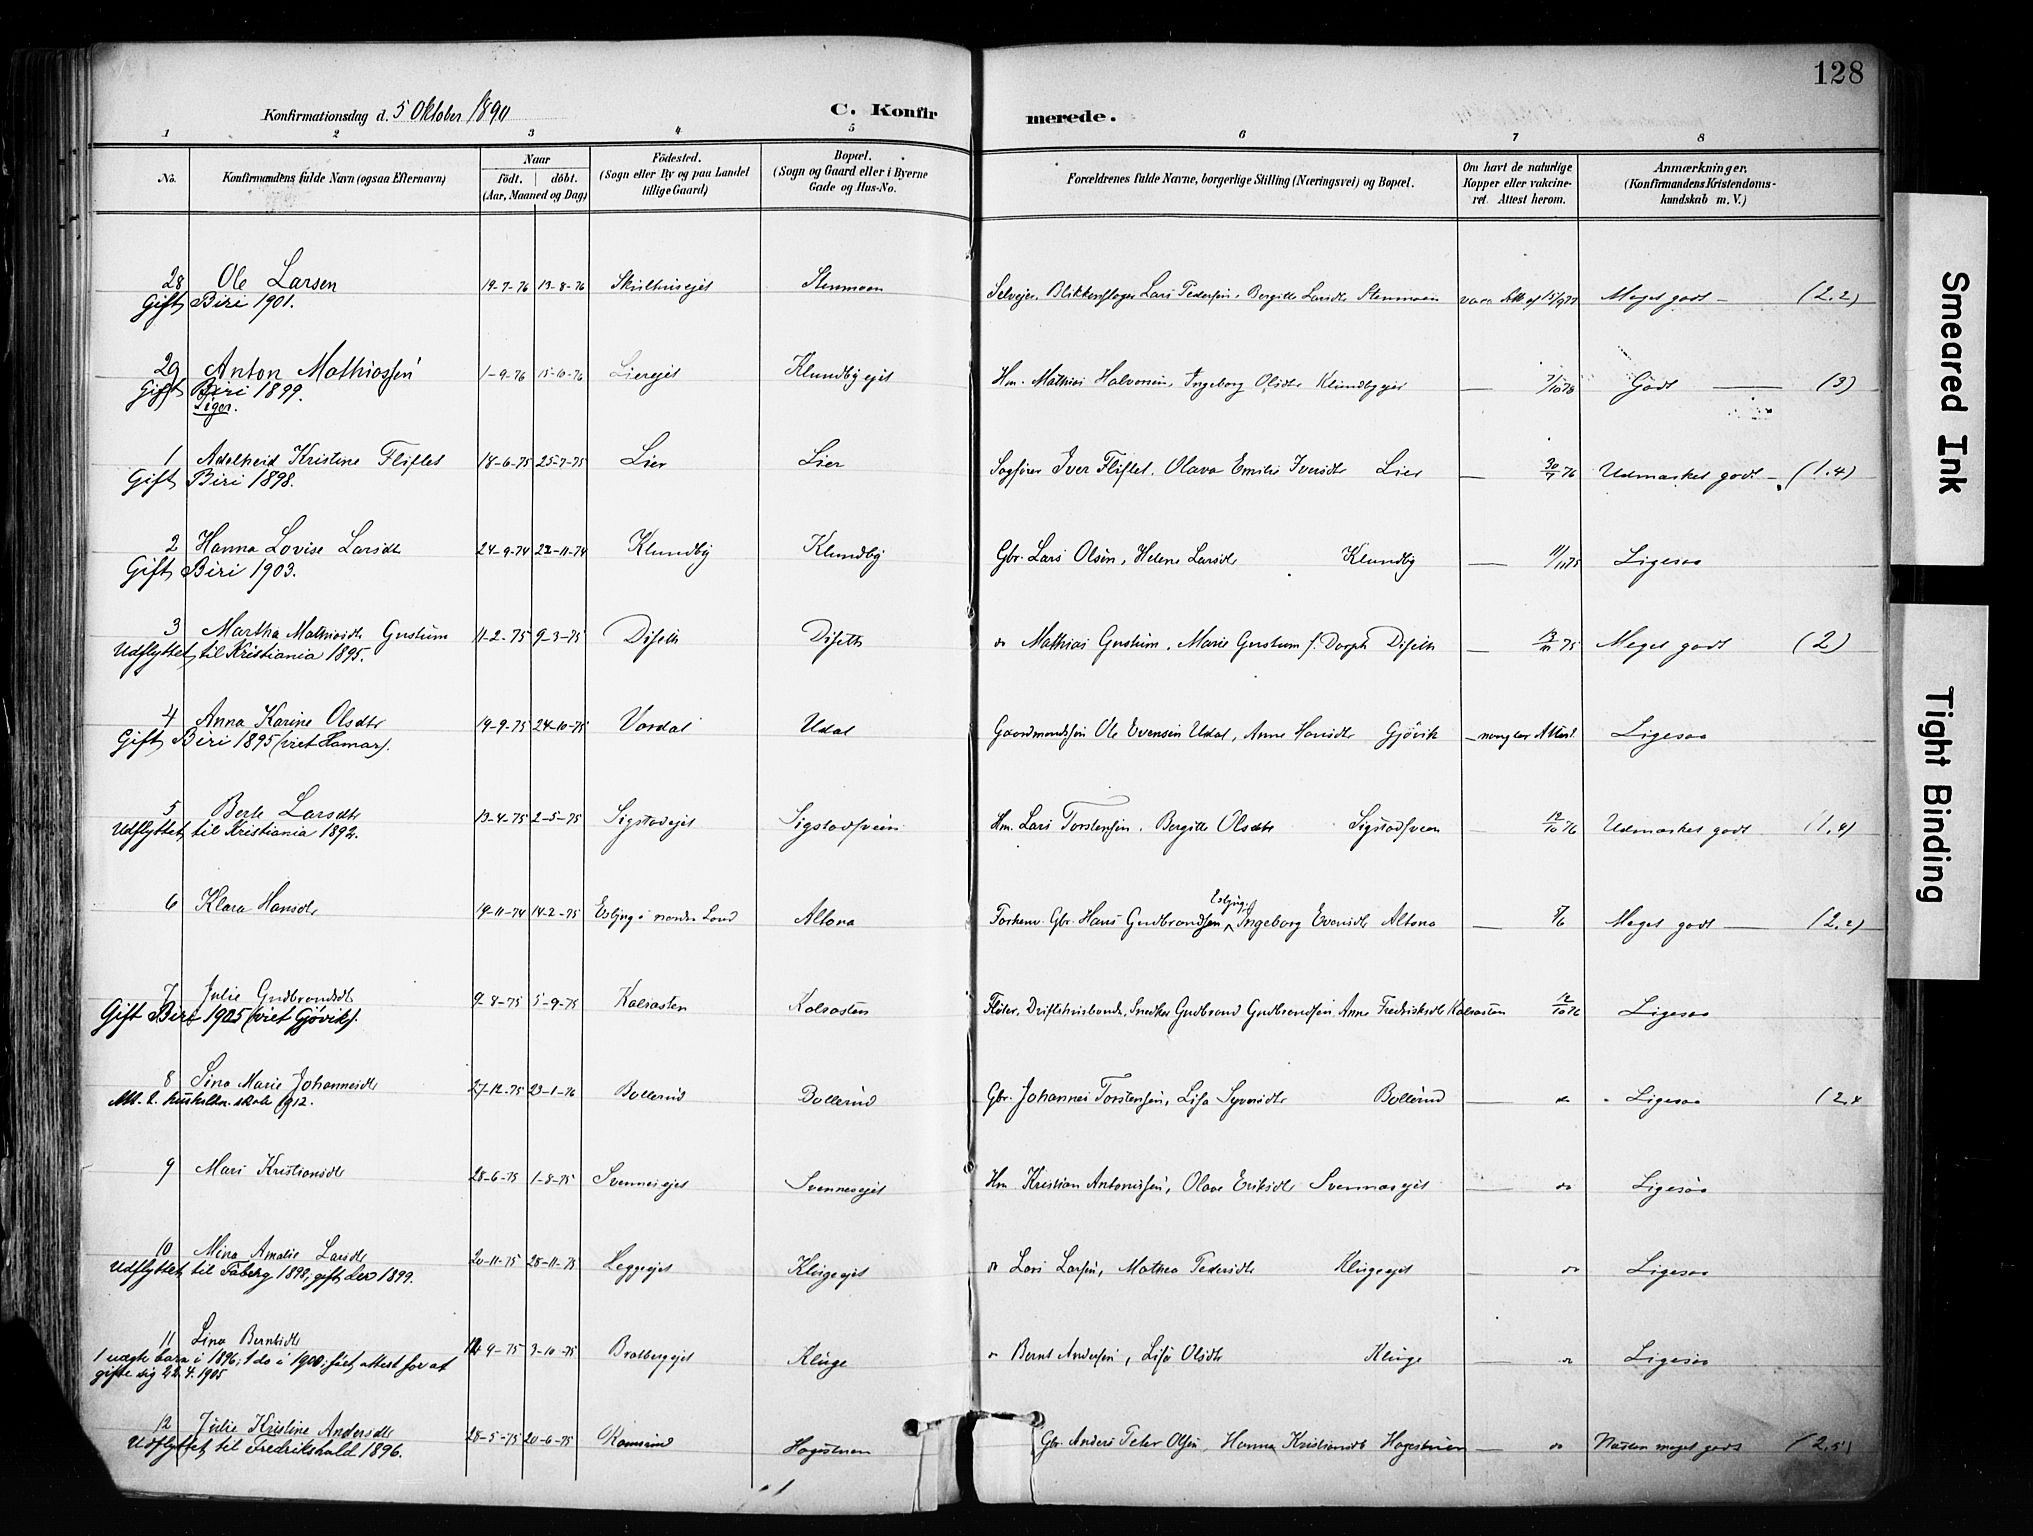 128
Konfirmationsdag d. 5 Oktober 1890
C. Konfirmerede.
1 2 3 4 5 6 7 8
No.
Konfirmandens fulde Navn (ogsaa Efternavn)
Naar
født. døbt.
(Aar, Maaned og Dag)
Fødested.
(Sogn eller By og paa Landet
tillige Gaard)
Bopæl.
(Sogn og Gaard eller i Byerne
Gade og Hus-No.
Forældrenes fulde Navne, borgerlige Stilling (Næringsvei) og Bopæl.
Om havt de naturlige
Kopper eller vakcine-
ret Attest herom.
Anmærkninger.
(Konfirmandens Kristendoms-
kundskab m. V.)
28 Ole Larsen 19-7-76 13-8-76 Stenmoen Selveier, Blikkenslager Lars Pedersen, Bergitte Larsdtr Stenmoen Meget godt - (2.2)
Gift Biri 1901.
29 Anton Mathiassen 1-9-76 15-10-76 Liereiet Klundbyeiet Hm. Mathias Halvorsen, Ingeborg Olsdtr Klundbyeiet — Godt — (3)
Gift Biri 1899.
Piger.
1 Adelheid Kristine Fliflet 18-6-75 25-7-75 Lier Lier Sagfører Iver Fliflet, Olava Emilie Iversdtr Lier — Udmærket godt - (1.4)
Gift Biri 1898.
2 Hanna Lovise Larsdtr 24-9-74 22-11-74 Klundby Klundby Gbr. Lars Olsen, Helene Larsdtr Klundby — Ligesaa
Gift Biri 1903.
3 Martha Mathiasdtr Gustum 11-2-75 9-3-75 Diseth Diseth do Mathias Gustum, Marie Gustum f. Dorph Diseth — Meget godt (2)
Udflyttet til Kristiania 1895.
4 Anna Karine Olsdtr 19-9-75 24-10-75 Vardal Udal Gaardmandssøn Ole Evensen Udal, Anne Hansdtr Gjøvik — mangler Attest. Ligesaa
Gift Biri 1895 (viet Hamar).
5 Berte Larsdtr 13-4-75 2-5-75 Sigstadeiet Sigstadsveen Hm. Lars Torstensen, Bergitte Olsdtr Sigstadsveen — 12/10 76 Udmærket godt (1.4)
Udflyttet til Kristiania 1892.
6 Klara Hansdtr 19-11-74 14-2-75 Esbjug i nordre Land Altona Forhenv. Gbr. Hans Gudbrandsen Esbjug, Ingeborg Evensdtr Altona — Meget godt — (2.2)
7 Julie Gudbrandsdtr 9-8-75 5-9-75 Kalrasten Kalrasten Fløter, Driftshusbonde, Snedker Gudbrand Gudbrandsen, Anne Fredriksdtr Kalrasten 12/10 76 Ligesaa
Gift Biri 1905 (viet Gjøvik).
8 Sina Marie Johannesdtr 27-12-75 23-1-76 Bollerud Bollerud Gbr. Johannes Torstensen, Lisa Syversdtr Bollerud — do Ligesaa (2.4
Att. t. husholdn. skole 1912.
9 Mari Kristiansdtr 28-6-75 1-8-75 Svenneseiet Svenneseiet Hm Kristian Antonissen, Olave Eriksdtr Svenneseiet — do Ligesaa
10 Mina Amalie Larsdtr 20-11-75 28-11-75 Heggeeiet Klugeeiet do Lars Larsen, Mathea Pedersdtr Klugeeiet — do Ligesaa
Udflyttet til Faberg 1898, gift der 1899.
11 Lina Berntsdtr 9-75 3-10-75 Bratbergeiet Kluge do Bernt Andersen, Lisa Olsdtr Kluge — do Ligesaa
1 uægte barn i 1896, 1 do i 1900, fået attest for at
gifte sig 22.4.1905
12 Julie Kristine Andersdtr 28-5-75 20-6-75 Hagestuen Gbr. Anders Peter Olsen, Hanna Kristiansdtr Hagestuen — do Næsten meget godt (2.5)
Udflyttet til Fredrikshald 1896.
Smeared Ink
Tight Binding